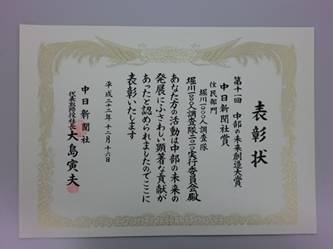 表彰状
第十一回 中部の未来創造大賞
中日新聞社賞
住民部門
堀川一〇〇〇人調査隊
堀川一〇〇〇人調査隊二〇一〇実行委員会殿
あなた方の活動は中部の未来の
発展にふさわしい顕著な貢献が
あったと認められましたのでここに
表彰いたします
平成二十二年十二月十六日
中日新聞社
代表取締役社長 大島寅夫